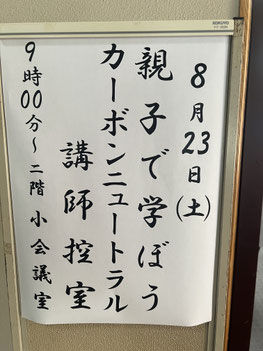 8月23日(土)
親子で学ぼう
カーボンニュートラル
講師控室
9時00分～二階小会議室